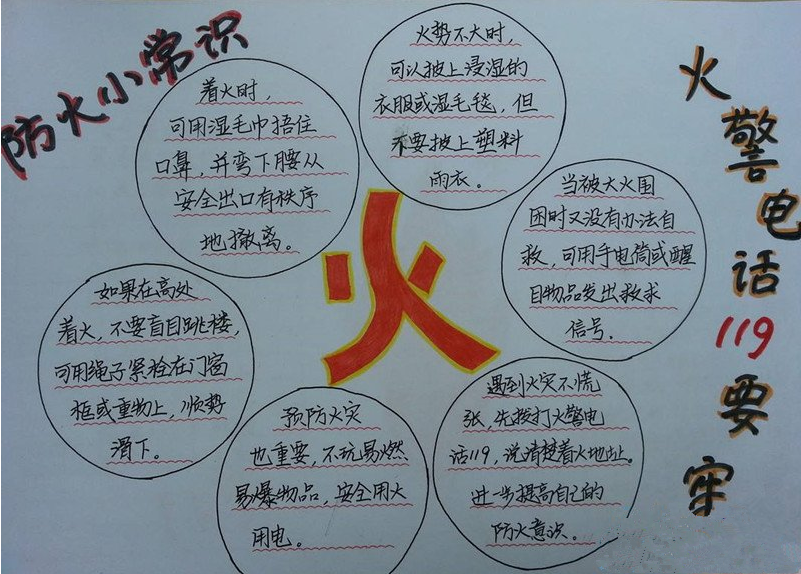 防火小常识
着火时，
可用湿毛巾捂住
口鼻，并弯下腰从
安全出口有秩序
地撤离。
火势不大时，
可以披上浸湿的
衣服或湿毛毯，但
不要披上塑料
雨衣。
当被大火围
困时又没有办法自
救，可用手电筒或醒
目物品发出救求
信号。
火
如果在高处
着火，不要盲目跳楼，
可用绳子紧栓在门窗
框或重物上，顺势
滑下。
预防火灾
也重要，不玩易燃
易爆物品，安全用火
用电。
遇到火灾不慌
张，先拨打火警电
话119，说清楚着火地址。
进一步提高自己的
防火意识。
火警电话119要牢